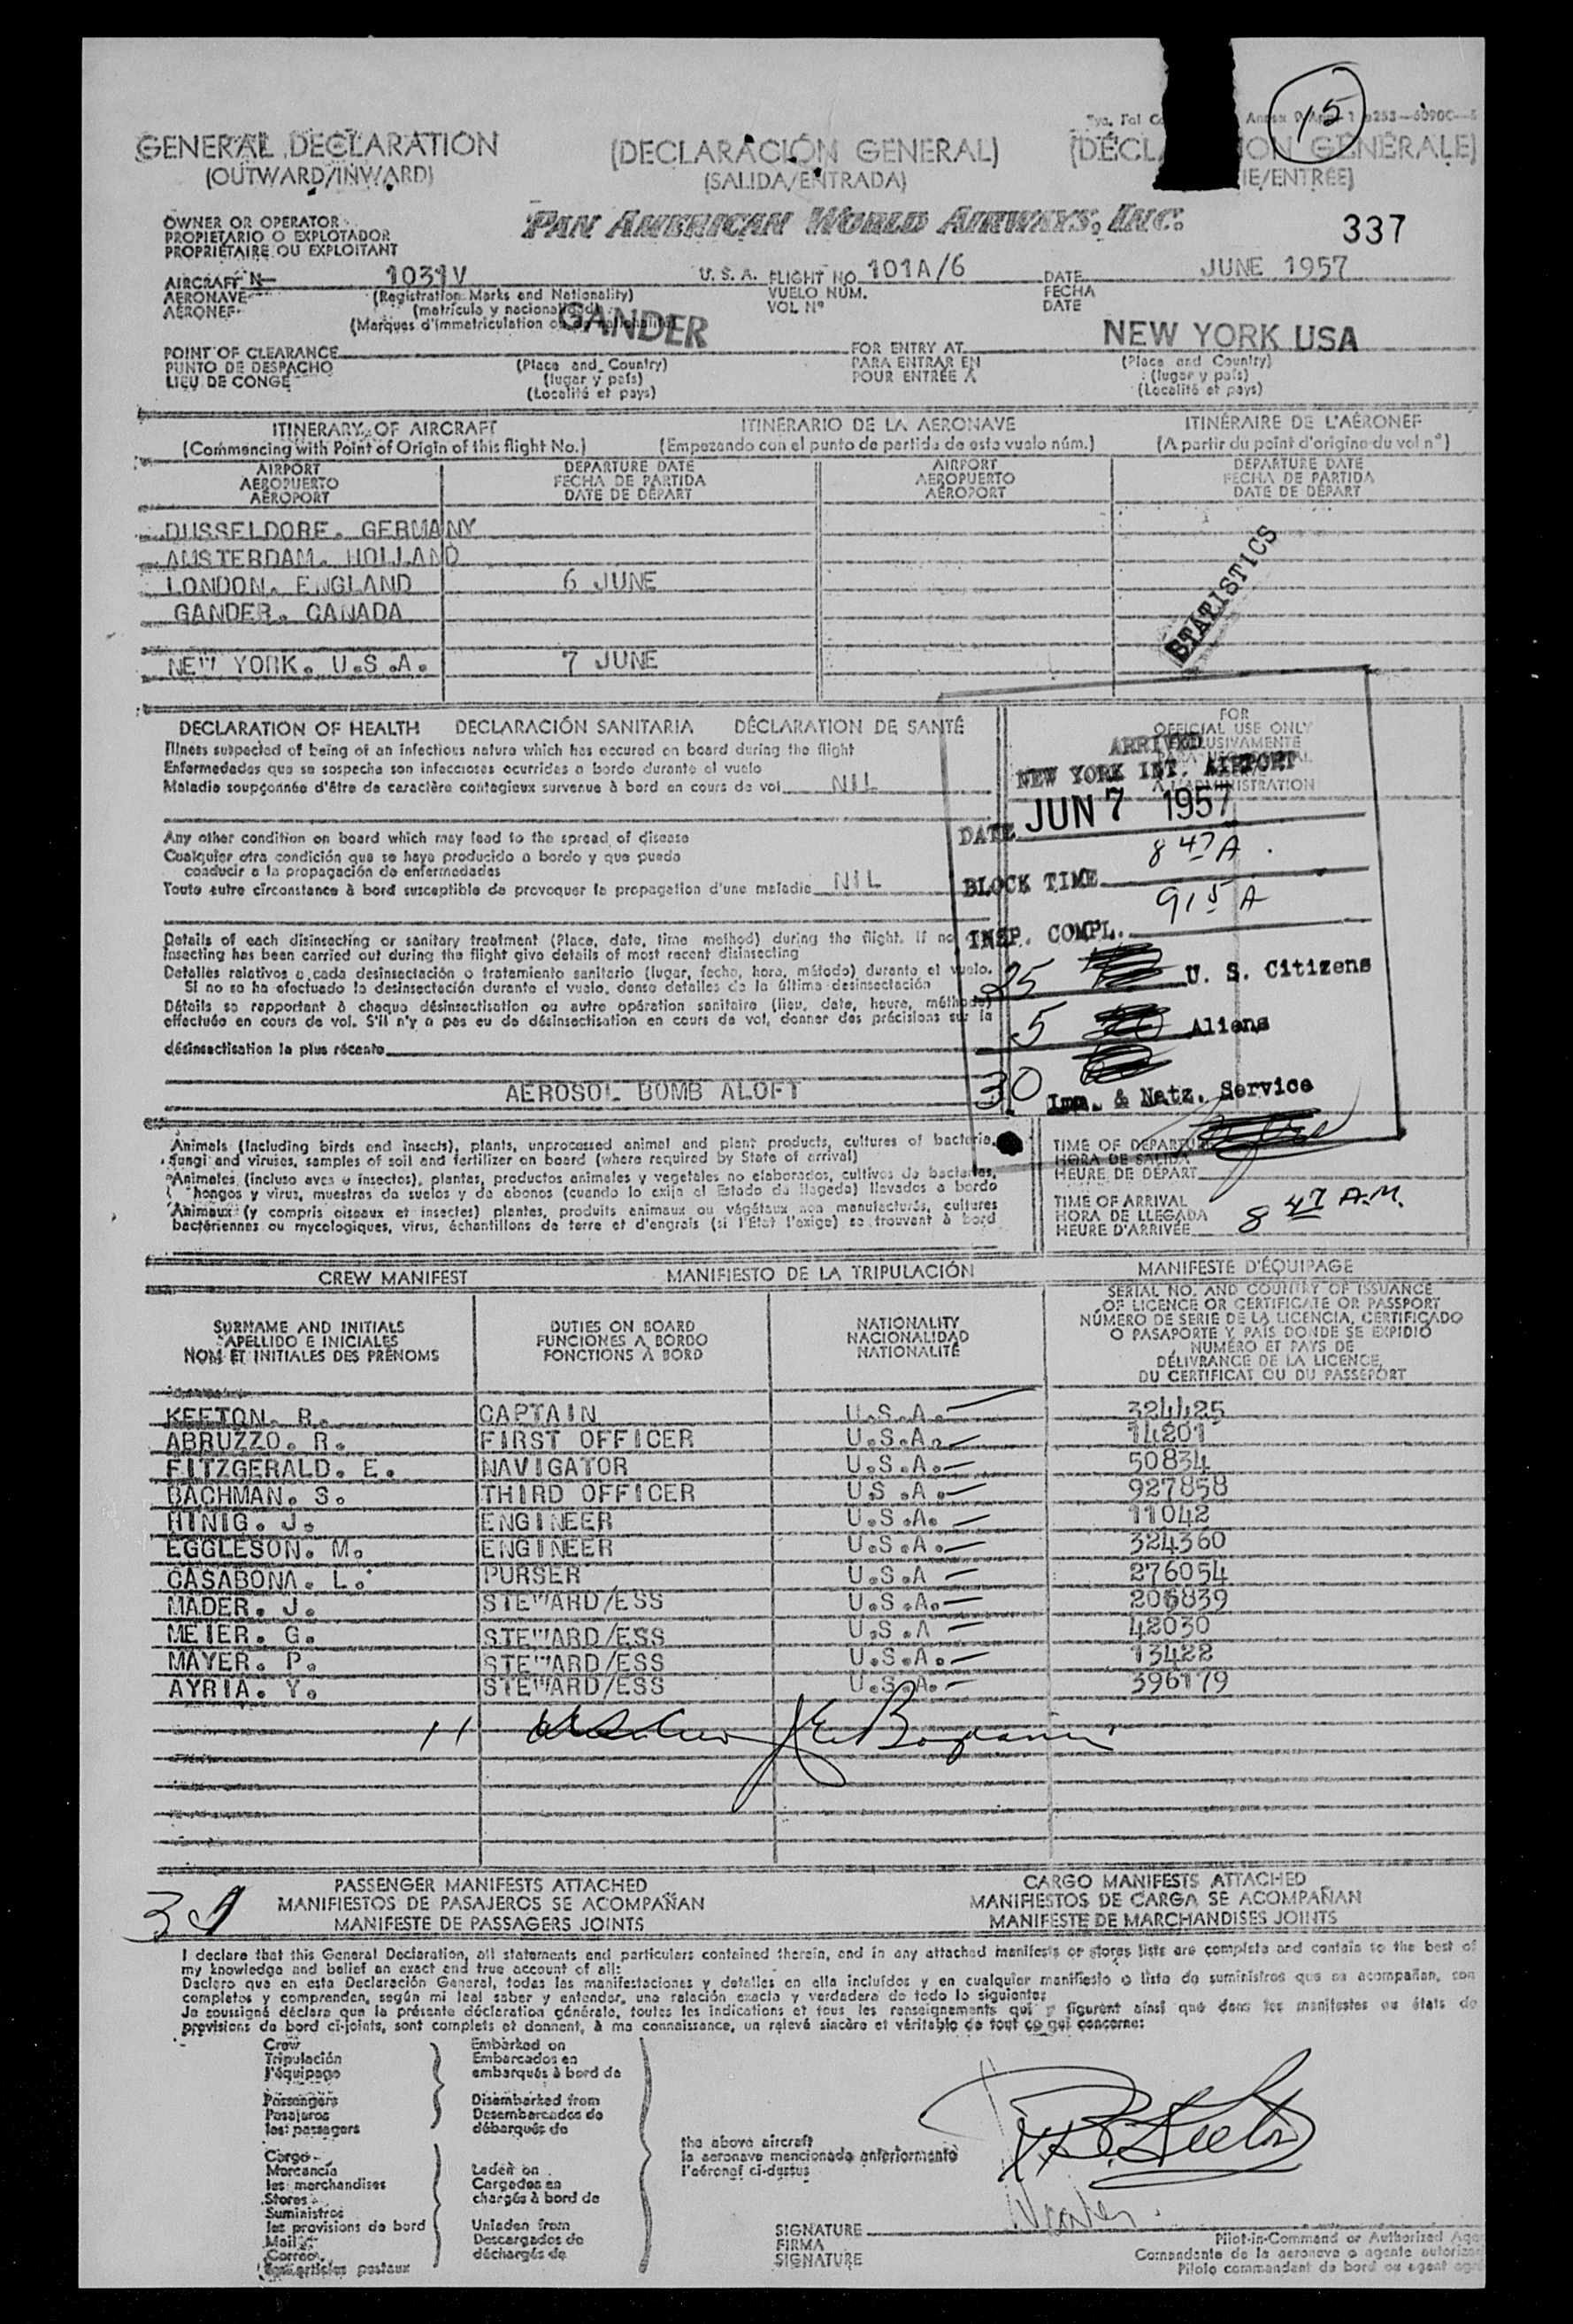 15
GENERAL DECLARATION (DECLARACIÓN GENERAL)
(OUTWARD/INWARD) (SALIDA/ENTRADA) IE/ENTRÉE)
OWNER OR OPERATOR
PROPIETARIO O EXPLOTADOR
PROPRIÉTAIRE OU EXPLOITANT
PAN AMERICAN WORLD AIRWAYS, INC.
337
AIRCRAFT N 1031V U. S. A. FLIGHT NO. 101A/6 DATE JUNE 1957
AERONAVE (Registration Marks and Nationality) VUELO NÚM. FECHA
AÉRONEF (matrícula y nacionalidad) VOL Nº DATE
(Marques d'immatriculation
GANDER NEW YORK USA
POINT OF CLEARANCE (Place and Country) FOR ENTRY AT (Place and Country)
PUNTO DE DESPACHO (lugar y país) PARA ENTRAR EN (lugar y país)
LIEU DE CONGÉ (Localité et pays) POUR ENTRÉE À (Localité et pays)
ITINERARY OF AIRCRAFT ITINERARIO DE LA AERONAVE ITINÉRAIRE DE L'AÉRONEF
(Commencing with Point of Origin of this flight No.) (Empezando con el punto de partida de este vuelo núm.) (A partir du point d'origine du vol n°)
AIRPORT DEPARTURE DATE AIRPORT DEPARTURE DATE
AEROPUERTO FECHA DE PARTIDA AEROPUERTO FECHA DE PARTIDA
AÉROPORT DATE DE DÉPART AÉROPORT DATE DE DÉPART
DUSSELDORF. GERMANY
AMSTERDAM. HOLLAND
LONDON. ENGLAND 6 JUNE
GANDER. CANADA
NEW YORK. U.S.A. 7 JUNE
STATISTICS
DECLARATION OF HEALTH DECLARACIÓN SANITARIA DÉCLARATION DE SANTÉ
Illness suspected of being of an infectious nature which has occured on board during the flight
Enfermedades que se sospecha son infecciosas ocurridas a bordo durante el vuelo
Maladie soupçonnée d'être de caractère contagieux survenue à bord en cours de vol NIL
Any other condition on board which may lead to the spread of disease
Cualquier otra condición que se haya producido a bordo y que pueda
conducir a la propagación de enfermedades
Toute autre circonstance à bord susceptible de provoquer la propagation d'une maladie NIL
Details of each disinsecting or sanitary treatment (Place, date, time method) during the flight. If no
insecting has been carried out during the flight give details of most recent disinsecting
Detalles relativos a cada desinsectación o tratamiento sanitario (lugar, fecha, hora, método) durante el vuelo.
Si no se ha efectuado la desinsectación durante el vuelo, dense detalles de la última desinsectación
Détails se rapportant à chaque désinsectisation ou autre opération sanitaire (lieu, date, heure, méthode)
effectuée en cours de vol. S'il n'y a pas eu de désinsectisation en cours de vol, donner des précisions sur la
désinsectisation la plus récente
AEROSOL BOMB ALOFT
FOR
OFFICIAL USE ONLY
ARRIVED
NEW YORK INT. AIRPORT
DATE JUN 7 1957
8 47 A.
BLOCK TIME
915 A
INSP. COMPL.
25 U. S. Citizens
5 Aliens
30 Imm. & Natz. Service
Animals (including birds and insects), plants, unprocessed animal and plant products, cultures of bacteria,
fungi and viruses, samples of soil and fertilizer on board (where required by State of arrival)
Animales (incluso aves e insectos), plantas, productos animales y vegetales no elaborados, cultivos de bacterias,
hongos y virus, muestras de suelos y de abonos (cuando lo exija el Estado de llegada) llevados a bordo
Animaux (y compris oiseaux et insectes) plantes, produits animaux ou végétaux non manufacturés, cultures
bactériennes ou mycologiques, virus, échantillons de terre et d'engrais (si l'État l'exige) se trouvant à bord
TIME OF DEPARTURE
HORA DE SALIDA
HEURE DE DÉPART
TIME OF ARRIVAL
HORA DE LLEGADA
HEURE D'ARRIVÉE 8 47 A.M.
CREW MANIFEST MANIFIESTO DE LA TRIPULACIÓN MANIFESTE D'ÉQUIPAGE
SURNAME AND INITIALS
APELLIDO E INICIALES
NOM ET INITIALES DES PRÉNOMS
DUTIES ON BOARD
FUNCIONES A BORDO
FONCTIONS À BORD
NATIONALITY
NACIONALIDAD
NATIONALITÉ
SERIAL NO. AND COUNTRY OF ISSUANCE
OF LICENCE OR CERTIFICATE OR PASSPORT
NÚMERO DE SERIE DE LA LICENCIA, CERTIFICADO
O PASAPORTE Y PAÍS DONDE SE EXPIDIÓ
NUMÉRO ET PAYS DE
DÉLIVRANCE DE LA LICENCE,
DU CERTIFICAT OU DU PASSEPORT
KEETON. R. CAPTAIN U.S.A. 324425
ABRUZZO. R. FIRST OFFICER U.S.A. 14201
FITZGERALD. E. NAVIGATOR U.S.A. 50834
BACHMAN. S. THIRD OFFICER U.S.A. 927858
HINIG. J. ENGINEER U.S.A. 11042
EGGLESON. M. ENGINEER U.S.A. 324360
CASABONA. L. PURSER U.S.A 276054
MADER. J. STEWARD/ESS U.S.A. 206839
MEIER. G. STEWARD/ESS U.S.A 42030
MAYER. P. STEWARD/ESS U.S.A. 13422
AYRIA. Y. STEWARD/ESS U.S.A. 396179
11
PASSENGER MANIFESTS ATTACHED CARGO MANIFESTS ATTACHED
MANIFIESTOS DE PASAJEROS SE ACOMPAÑAN MANIFIESTOS DE CARGA SE ACOMPAÑAN
MANIFESTE DE PASSAGERS JOINTS MANIFESTE DE MARCHANDISES JOINTS
I declare that this General Declaration, all statements and particulars contained therein, and in any attached manifests or stores lists are complete and contain to the best of
my knowledge and belief an exact and true account of all:
Declaro que en esta Declaración General, todas las manifestaciones y detalles en ella incluídos y en cualquier manifiesto o lista de suministros que se acompañan, son
completos y comprenden, según mi leal saber y entender, una relación exacta y verdadera de todo lo siguiente:
Je soussigné déclare que la présente déclaration générale, toutes les indications et tous les renseignements qui y figurent ainsi que dans les manifestes ou états de
provisions de bord ci-joints, sont complets et donnent, à ma connaissance, un relevé sincère et véritable de tout ce qui concerne:
Crew Embarked on
Tripulación Embarcados en
l'équipage embarqués à bord de
Passengers Disembarked from
Pasajeros Desembarcados de
les passagers débarqués de
the above aircraft
la aeronave mencionada anteriormente
l'aéronef ci-dessus
Cargo
Mercancía Laden on
les marchandises Cargados en
Stores chargés à bord de
Suministros
les provisions de bord Unladen from
Mail Descargados de
Correo déchargés de
les articles postaux
R. B. Keeton
SIGNATURE
FIRMA
SIGNATURE
Pilot-in-Command or Authorized
Comandante de la aeronave o agente
Pilote commandant de bord ou agent